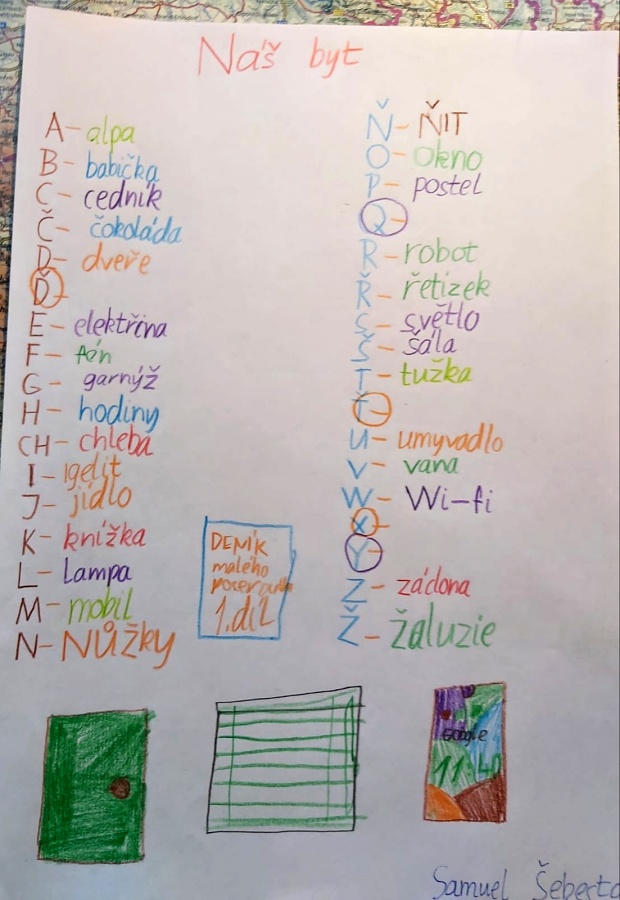 Náš byt
A- alpa
B- babička
C- cedník
Č- čokoláda
D- dveře
Ď-
E- elektřina
F- fén
G- garnýž
H- hodiny
CH- chleba
I- igelit
J- jídlo
K- knížka
L- Lampa
M- mobil
N- NŮŽky
Ň- ŇIT
O- Okno
P- postel
Q-
R- robot
Ř- řetízek
S- světlo
Š- šála
T- tužka
Ť-
U- umyvadlo
V- vana
W- Wi-fi
X-
Y-
Z- záclona
Ž- žaluzie
DENÍK
malého
1.díl
Google
11:40
Samuel Šebesta